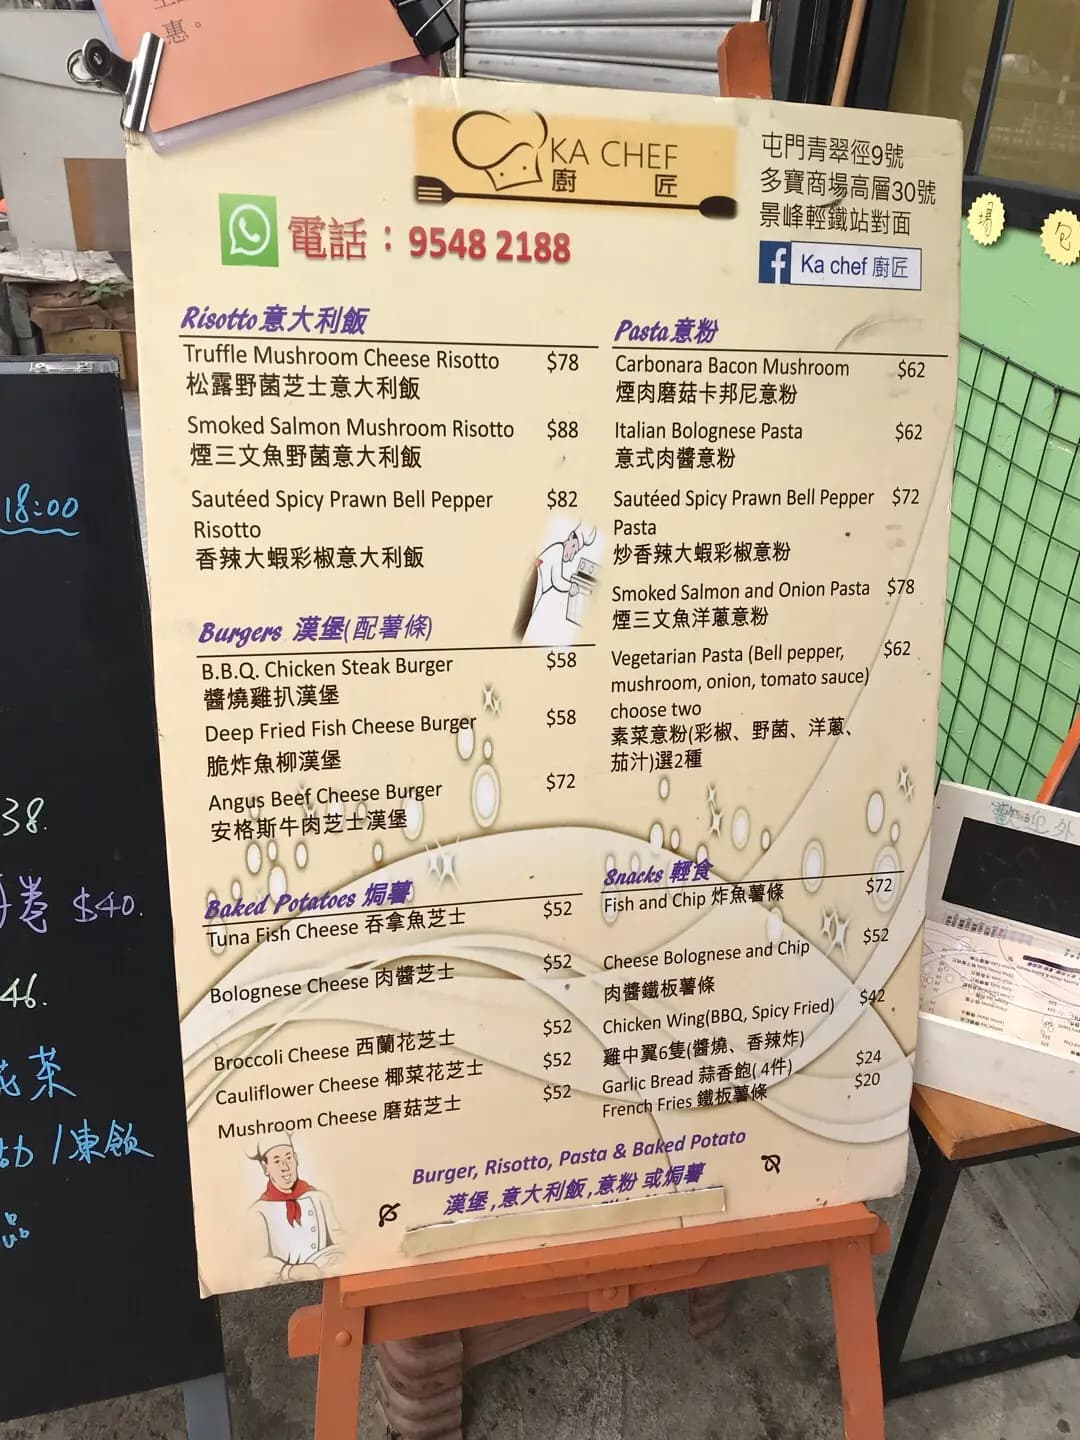 惠。
KA CHEF
廚 匠
屯門青翠徑9號
多寶商場高層30號
景峰輕鐵站對面
Ka chef 廚匠
電話：9548 2188
Risotto 意大利飯
Truffle Mushroom Cheese Risotto $78
松露野菌芝士意大利飯
Smoked Salmon Mushroom Risotto $88
煙三文魚野菌意大利飯
Sautéed Spicy Prawn Bell Pepper $82
Risotto
香辣大蝦彩椒意大利飯
Burgers 漢堡(配薯條)
B.B.Q. Chicken Steak Burger $58
醬燒雞扒漢堡
Deep Fried Fish Cheese Burger $58
脆炸魚柳漢堡
Angus Beef Cheese Burger $72
安格斯牛肉芝士漢堡
Baked Potatoes 焗薯
Tuna Fish Cheese 吞拿魚芝士 $52
Bolognese Cheese 肉醬芝士 $52
Broccoli Cheese 西蘭花芝士 $52
Cauliflower Cheese 椰菜花芝士 $52
Mushroom Cheese 磨菇芝士 $52
Pasta 意粉
Carbonara Bacon Mushroom $62
煙肉磨菇卡邦尼意粉
Italian Bolognese Pasta $62
意式肉醬意粉
Sautéed Spicy Prawn Bell Pepper $72
Pasta
炒香辣大蝦彩椒意粉
Smoked Salmon and Onion Pasta $78
煙三文魚洋蔥意粉
Vegetarian Pasta (Bell pepper, $62
mushroom, onion, tomato sauce)
choose two
素菜意粉(彩椒、野菌、洋蔥、
茄汁)選2種
Snacks 輕食
Fish and Chip 炸魚薯條 $72
Cheese Bolognese and Chip $52
肉醬鐵板薯條
Chicken Wing(BBQ, Spicy Fried) $42
雞中翼6隻(醬燒、香辣炸)
Garlic Bread 蒜香飽(4件) $24
French Fries 鐵板薯條 $20
Burger, Risotto, Pasta & Baked Potato
漢堡,意大利飯,意粉 或焗薯
18:00
38.
卷 $40.
46.
花茶
/凍飲
品
歡迎外